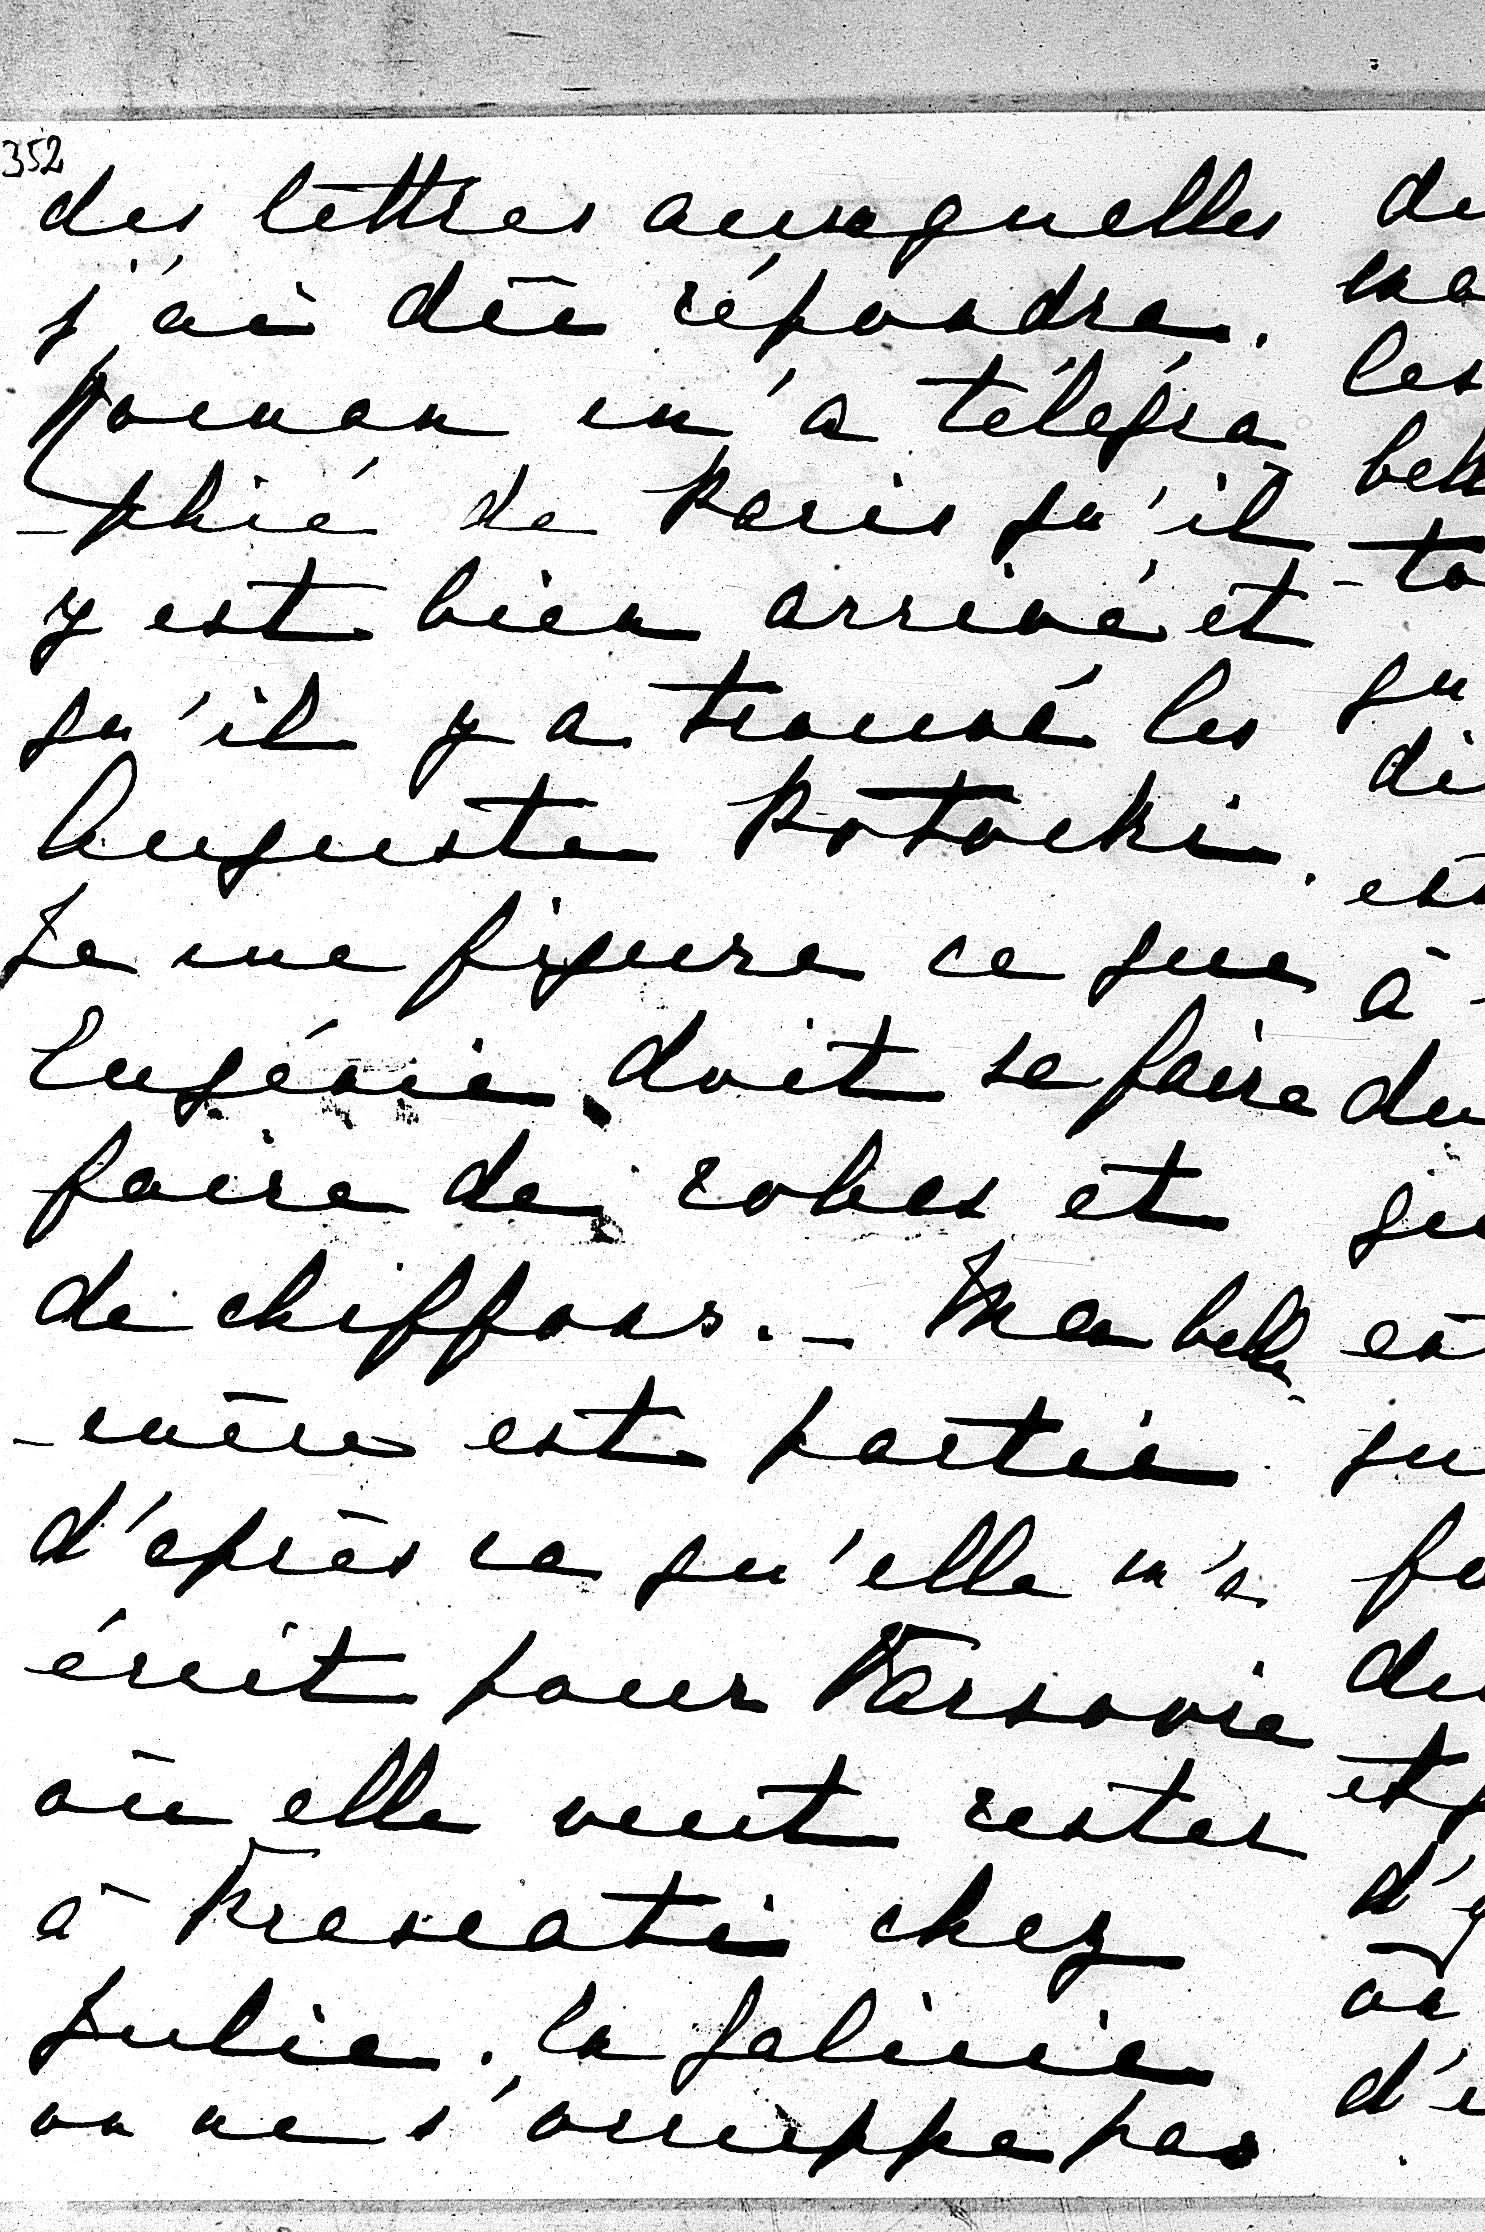 352
des lettres auxquelles
j'ai dû répondre.
Roman m'a télégra
-phié de Paris qu'il
y est bien arrivé et
qu'il y a trouvé les
Auguste Potocki.
Je me figure ce que
Eugénie doit se faire
faire de robes et
de chiffons. - Ma belle
-mère est partie
d'après ce qu'elle m'a
écrit pour Varsovie
où elle veut rester
à Frescati chez
Julie. En Galicie
on ne s'occuppe pas